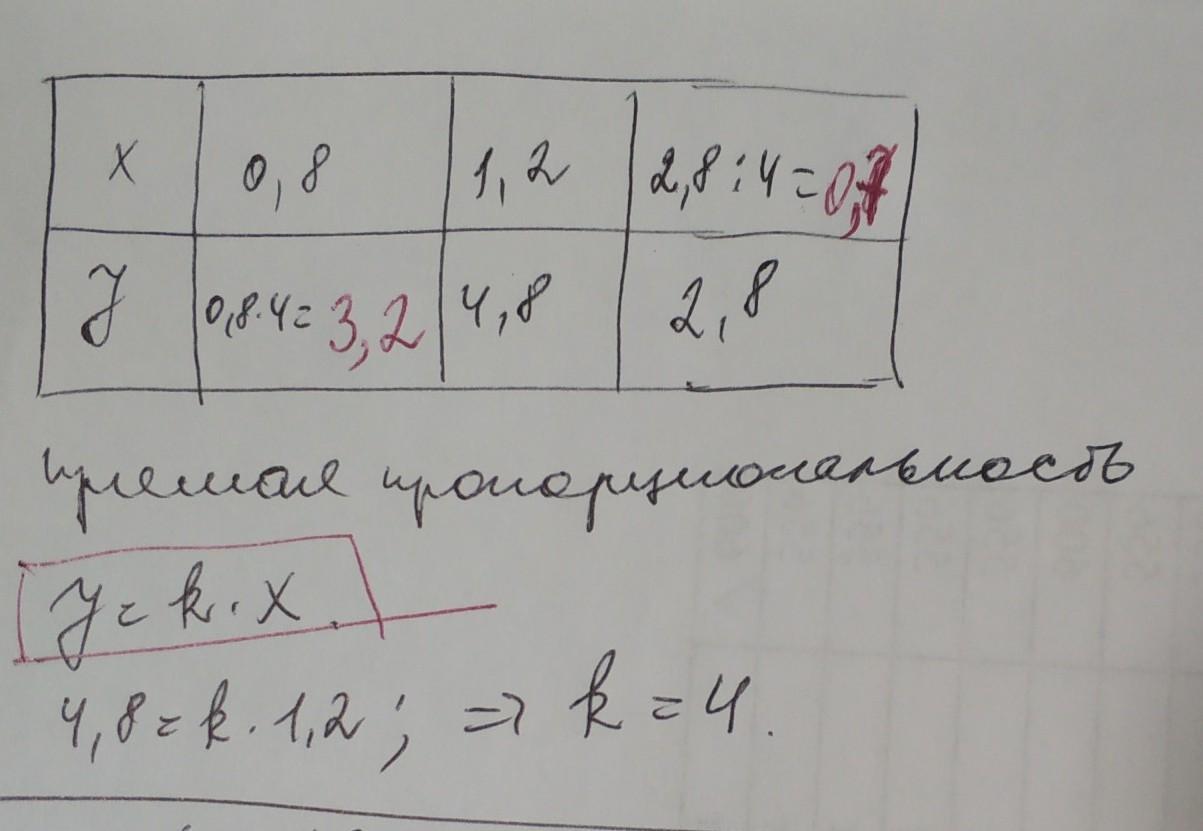 x 0,8 1,2 2,8:4=0,7
y 0,8·4=3,2 4,8 2,8
прямая пропорциональность
y=k·x
4,8=k·1,2; ⇒ k=4.